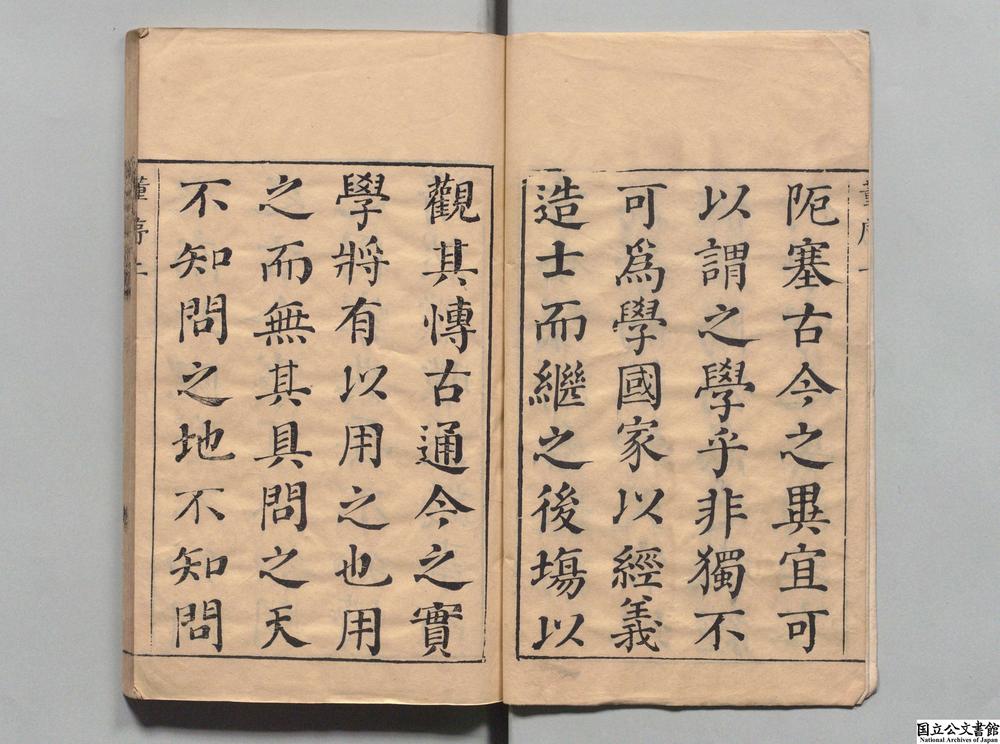 阨塞古今之異宜可
以謂之學乎非獨不
可爲學國家以經義
造士而繼之後塲以
觀其愽古通今之實
學將有以用之也用
之而無其具問之天
不知問之地不知問
董序二
国立公文書館
National Archives of Japan